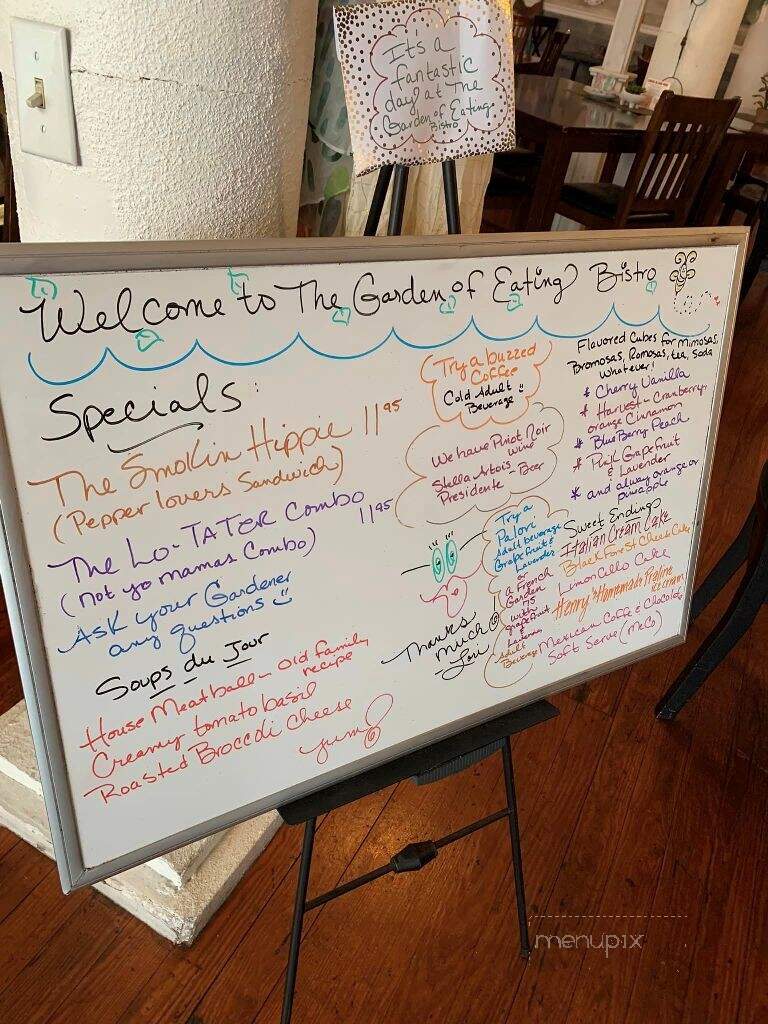 It's a
fantastic
day at The
Garden of Eating
Bistro
Welcome to The Garden of Eating Bistro
Specials:
The Smokin Hippie 11 95
(Pepper lovers Sandwich)
The Lo-TATER Combo 11 95
(not yo mamas Combo)
Ask your Gardener
any questions
Soups du Jour
House Meatball - old family
recipe
Creamy tomato basil
Roasted Broccoli Cheese
yum
Try a buzzed
Coffee
Cold Adult
Beverage
We have Pinot Noir
wine
Stella Artois
Presidente - Beer
Try a
Palori
Adult beverage
Grapefruit &
Lavender
or
a French
Garden
75
with
grapefruit
Adult
Beverage
Thanks
much
Lori
Flavored Cubes for Mimosas,
Bromosas, Romosas, tea, soda
whatever!
* Cherry Vanilla
* Harvest - Cranberry,
orange Cinnamon
* Blue Berry Peach
* Pink Grapefruit
& Lavender
* and always orange or
pineapple
Sweet Endings
Italian Cream Cake
Black Forest Cheese Cake
Limoncello Cake
Henry's Homemade Praline
ice cream
Mexican Coffe & Chocolate
Soft Serve (MoCo)
menupix